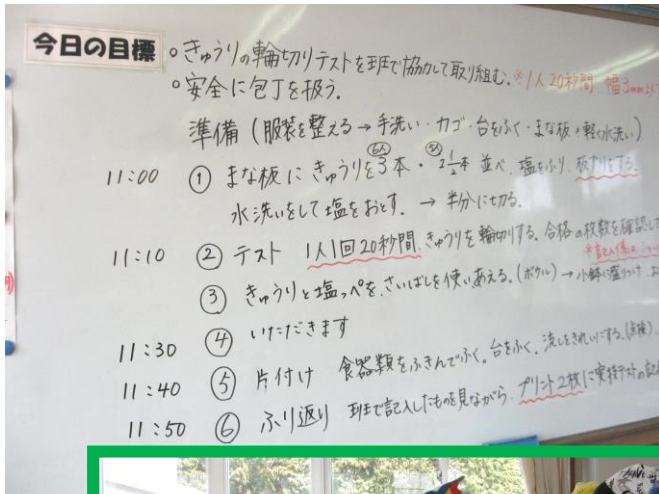 今日の目標 ○きゅうりの輪切りテストを班で協力して取り組む。※1人20秒間 幅3mm以下
○安全に包丁を扱う。
準備(服装を整える→手洗い・カゴ・台をふく・まな板→軽く水洗い)
11:00 ① まな板にきゅうりを3本・2½本 並べ、塩をふり、板ずりをする。
水洗いをして塩をおとす。→ 半分に切る。
11:10 ② テスト 1人1回20秒間、きゅうりを輪切りする。合格の枚数を確認して
③ きゅうりと塩っぺを、さいばしを使いあえる。(ボウル)→小鉢に盛りつけ、お
11:30 ④ いただきます
11:40 ⑤ 片付け 食器類をふきんでふく。台をふく。流しをきれいにする。(点検)。
11:50 ⑥ ふり返り 班で記入したものを見ながら、プリント2枚に実技テストの記入